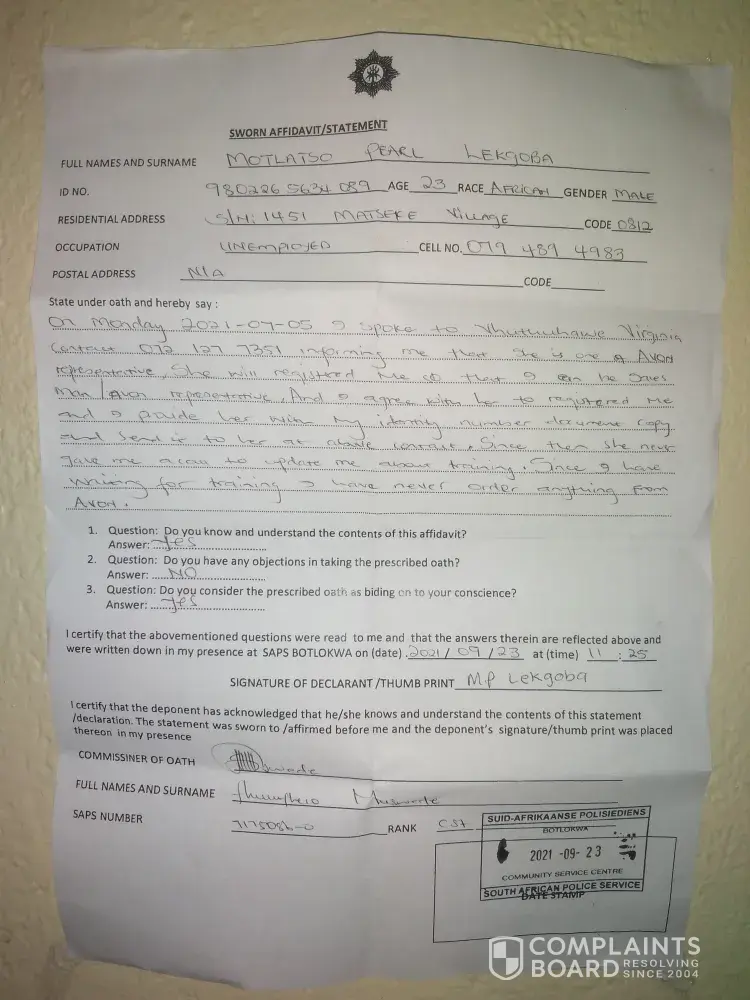 SWORN AFFIDAVIT/STATEMENT
FULL NAMES AND SURNAME MOTLATSO PEARL LEKGOBA
ID NO. 980226 5634 089 AGE 23 RACE AFRICAN GENDER MALE
RESIDENTIAL ADDRESS S/N: 1451 MATSEKE Village CODE 0812
OCCUPATION UNEMPLOYED CELL NO. 079 489 4983
POSTAL ADDRESS N/A CODE
State under oath and hereby say :
On Monday 2021-07-05 I spoke to Vhuthuhawe Virginia
Contact 072 127 7351 informing me that she is one of Avon
representative, She will registered me so that I can be Sales
Man/Avon representative, And I agree with her to registered me
and I provide her with my identity number document copy
and send it to her at above contact. Since then she never
gave me a call to update me about training. Since I have
waiting for training I have never order anything from
Avon.
1. Question: Do you know and understand the contents of this affidavit?
Answer: Yes
2. Question: Do you have any objections in taking the prescribed oath?
Answer: NO
3. Question: Do you consider the prescribed oath as biding on to your conscience?
Answer: Yes
I certify that the abovementioned questions were read to me and that the answers therein are reflected above and
were written down in my presence at SAPS BOTLOKWA on (date) 2021/09/23 at (time) 11:25
SIGNATURE OF DECLARANT /THUMB PRINT M.P Lekgoba
I certify that the deponent has acknowledged that he/she knows and understand the contents of this statement
/declaration. The statement was sworn to /affirmed before me and the deponent's signature/thumb print was placed
thereon in my presence
COMMISSINER OF OATH
FULL NAMES AND SURNAME
SAPS NUMBER 7175086-0 RANK CST
SUID-AFRIKAANSE POLISIEDIENS
BOTLOKWA
2021 -09- 23
COMMUNITY SERVICE CENTRE
SOUTH AFRICAN POLICE SERVICE
DATE STAMP
COMPLAINTS
BOARD RESOLVING
SINCE 2004